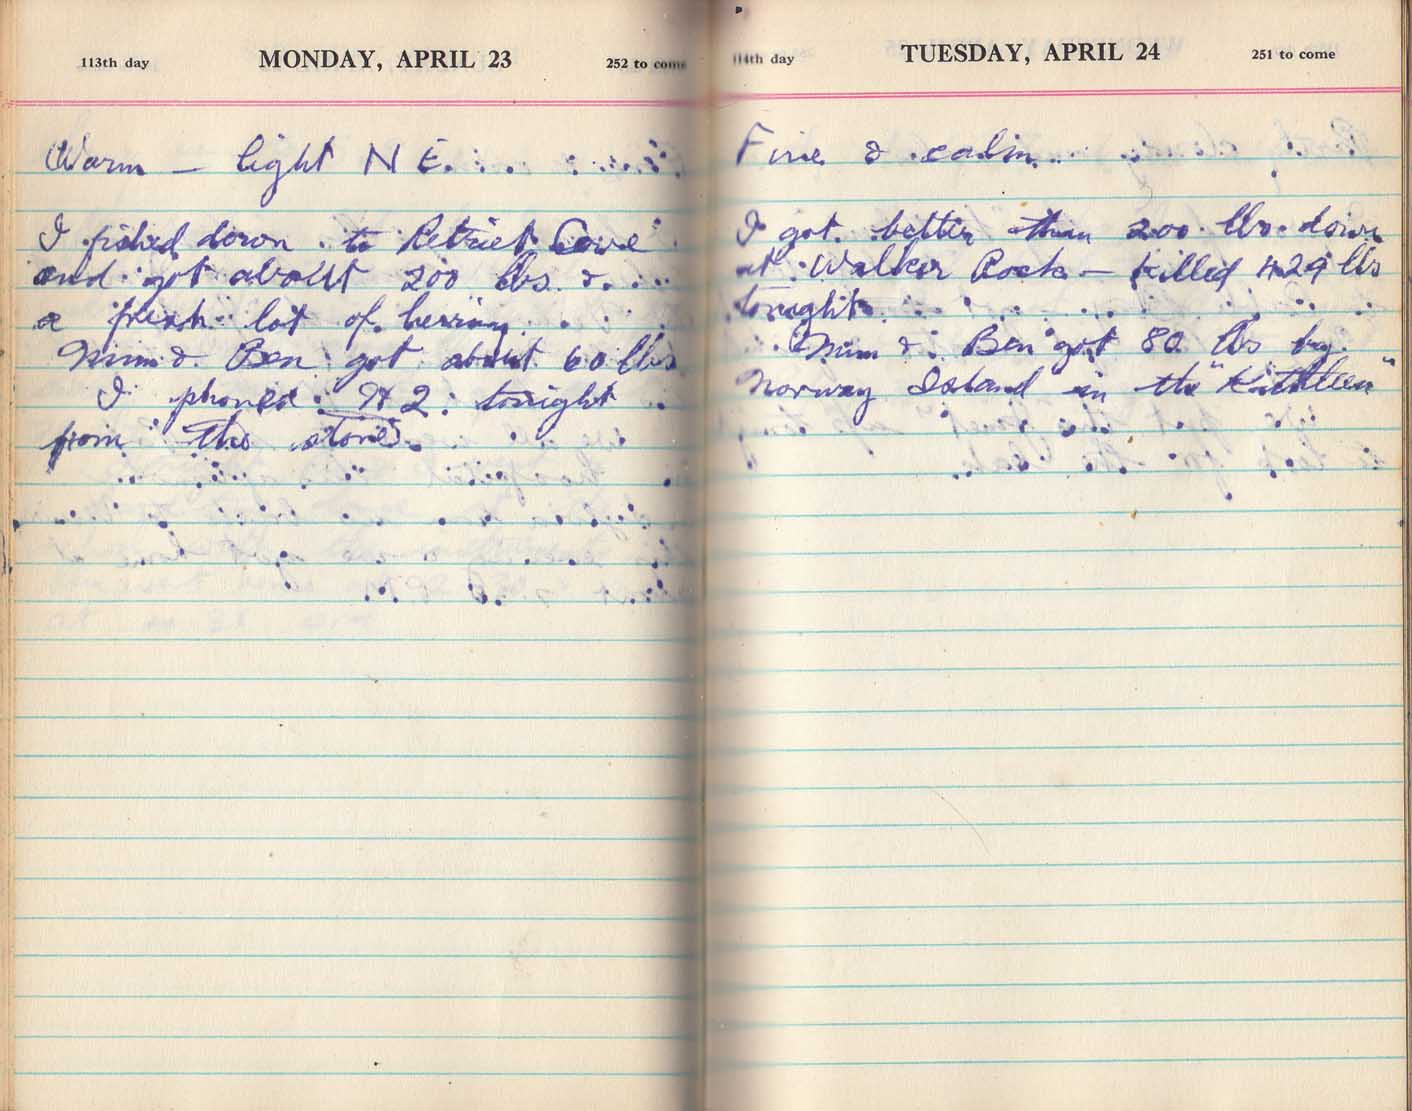 113th day MONDAY, APRIL 23 252 to come
Warm — light N E.
I fished down to Retriet Cove
and got about 200 lbs. &
a fresh lot of herring.
Mim & Ben got about 60 lbs
I phoned tonight
from the store.
114th day TUESDAY, APRIL 24 251 to come
Fine & calm.
I got better than 200 lbs. down
at Walker Rock — killed 429 lbs
tonight.
Mim & Ben got 80 lbs by
Norway Island in the "Kathleen"